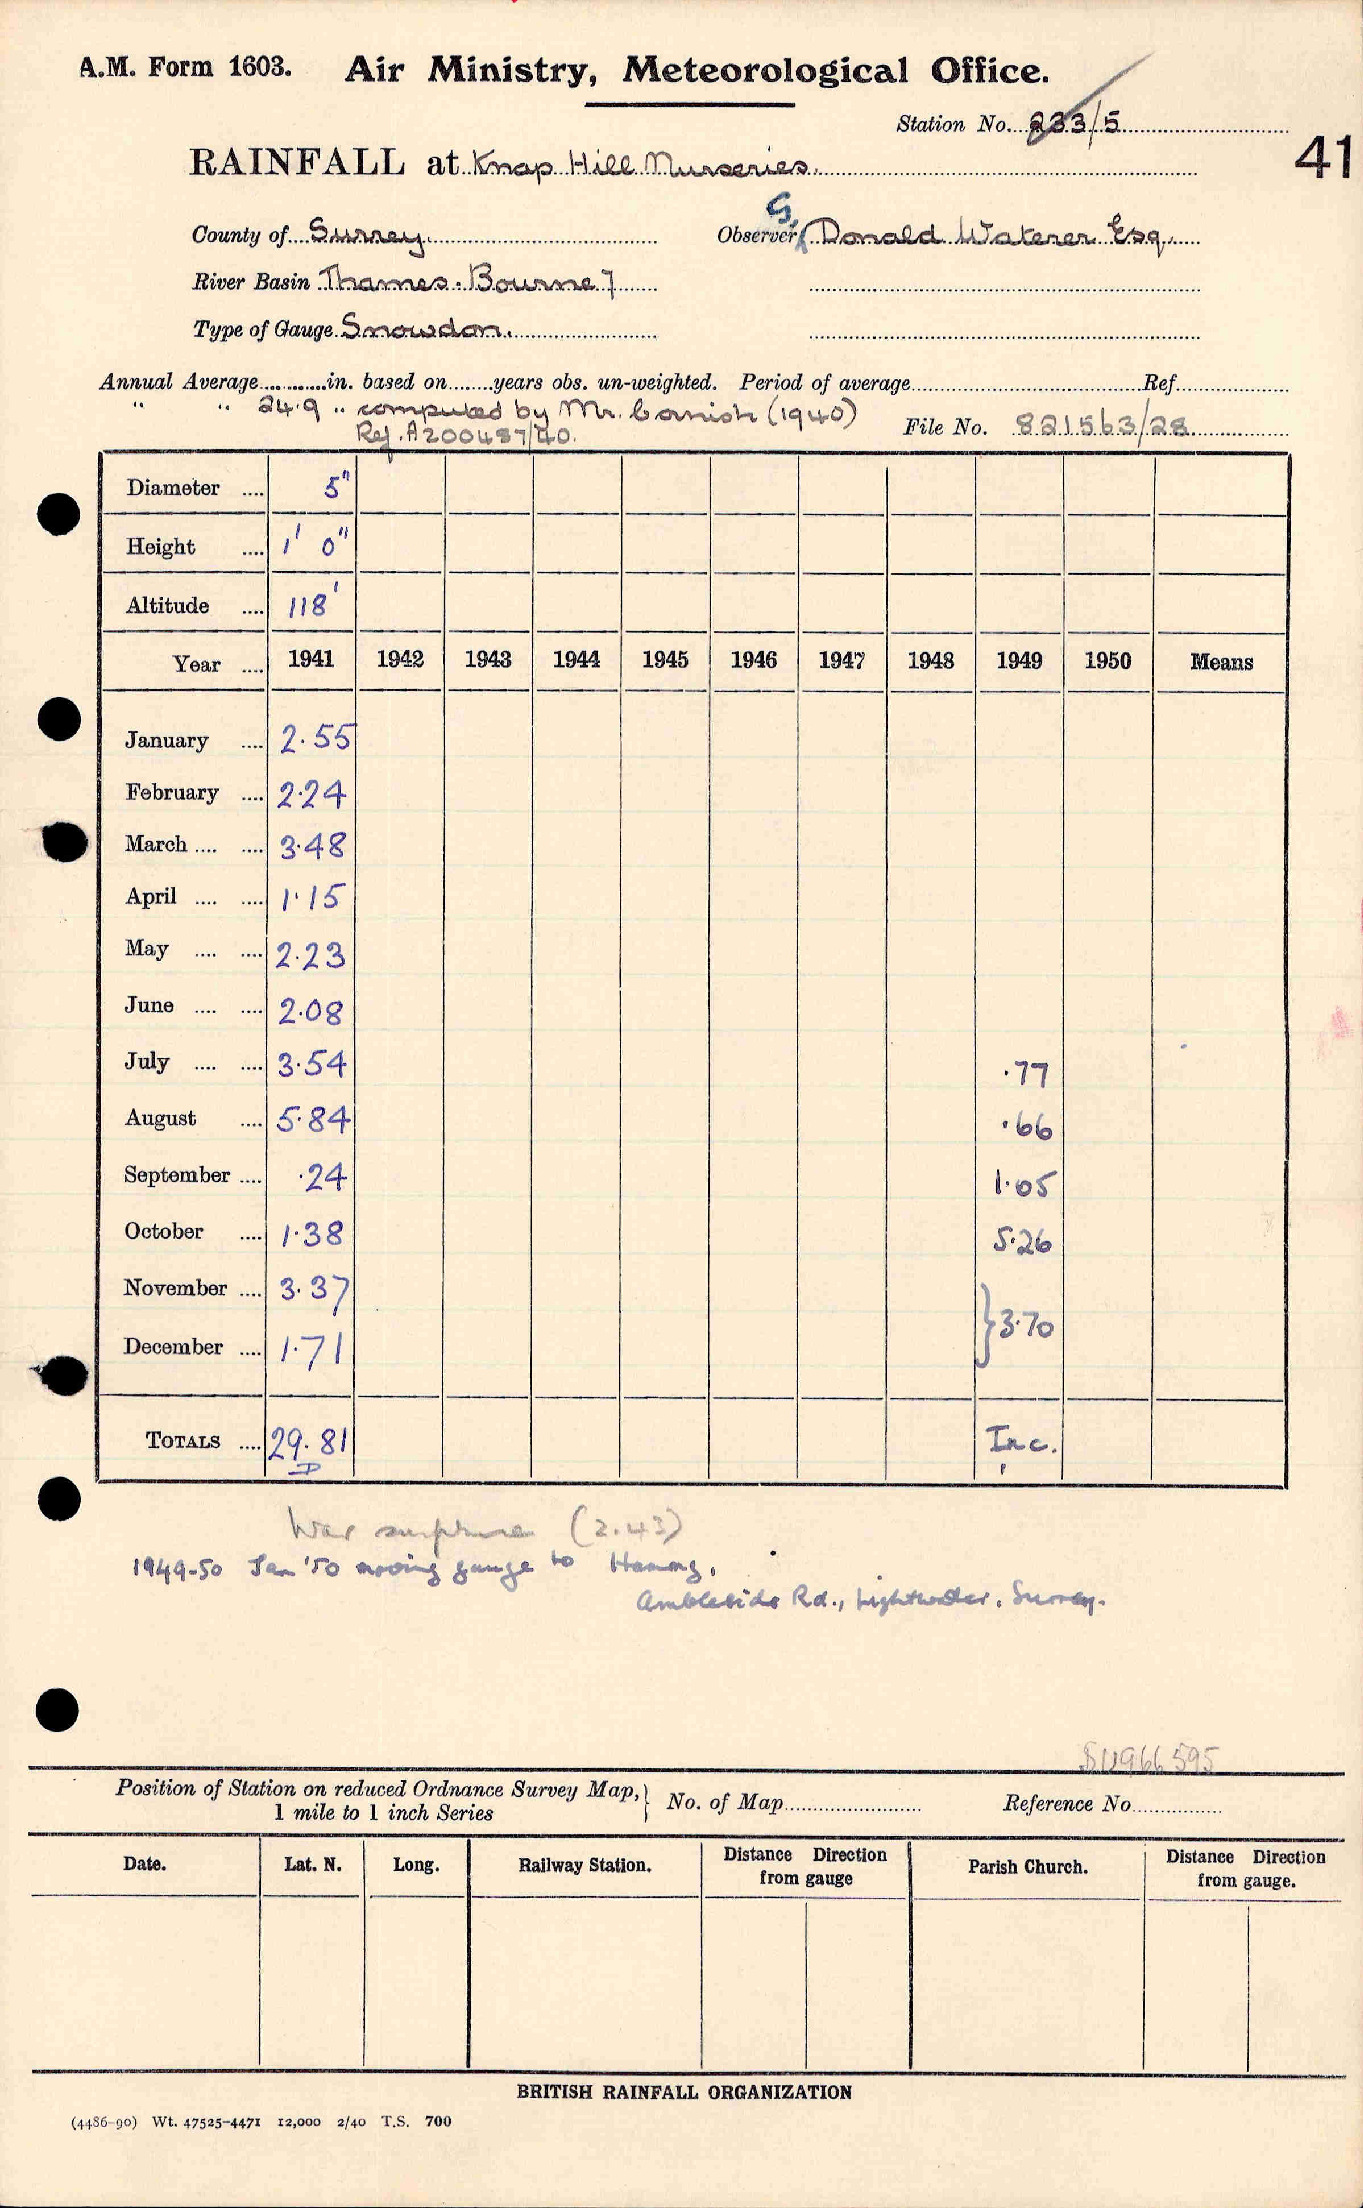 A.M. Form 1603. Air Ministry, Meteorological Office.
Station No. 233/5
41
RAINFALL at Knap Hill Nurseries.
County of Surrey Observer S. Donald Waterer Esq.
River Basin Thames. Bourne 7
Type of Gauge Snowdon.
Annual Average............in. based on........years obs. un-weighted. Period of average........Ref........
" " 24.9 " computed by Mr. Cornish (1940)
Ref. A200487/40. File No. 821563/28
Diameter .... 5"
Height .... 1' 0"
Altitude .... 118'
Year .... 1941 1942 1943 1944 1945 1946 1947 1948 1949 1950 Means
January .... 2.55
February .... 2.24
March .... .... 3.48
April .... .... 1.15
May .... .... 2.23
June .... .... 2.08
July .... .... 3.54 .77
August .... 5.84 .66
September .... .24 1.05
October .... 1.38 5.26
November .... 3.37
} 3.70
December .... 1.71
TOTALS .... 29.81 Inc.
War (2.43)
1949-50 Jan '50 moving gauge to
Ambleside Rd., Lightwater, Surrey.
SU966595
Position of Station on reduced Ordnance Survey Map, } No. of Map........ Reference No........
1 mile to 1 inch Series
Date. Lat. N. Long. Railway Station. Distance from gauge Direction Parish Church. Distance from gauge. Direction
BRITISH RAINFALL ORGANIZATION
(4486-90) Wt. 47525-4471 12,000 2/40 T.S. 700